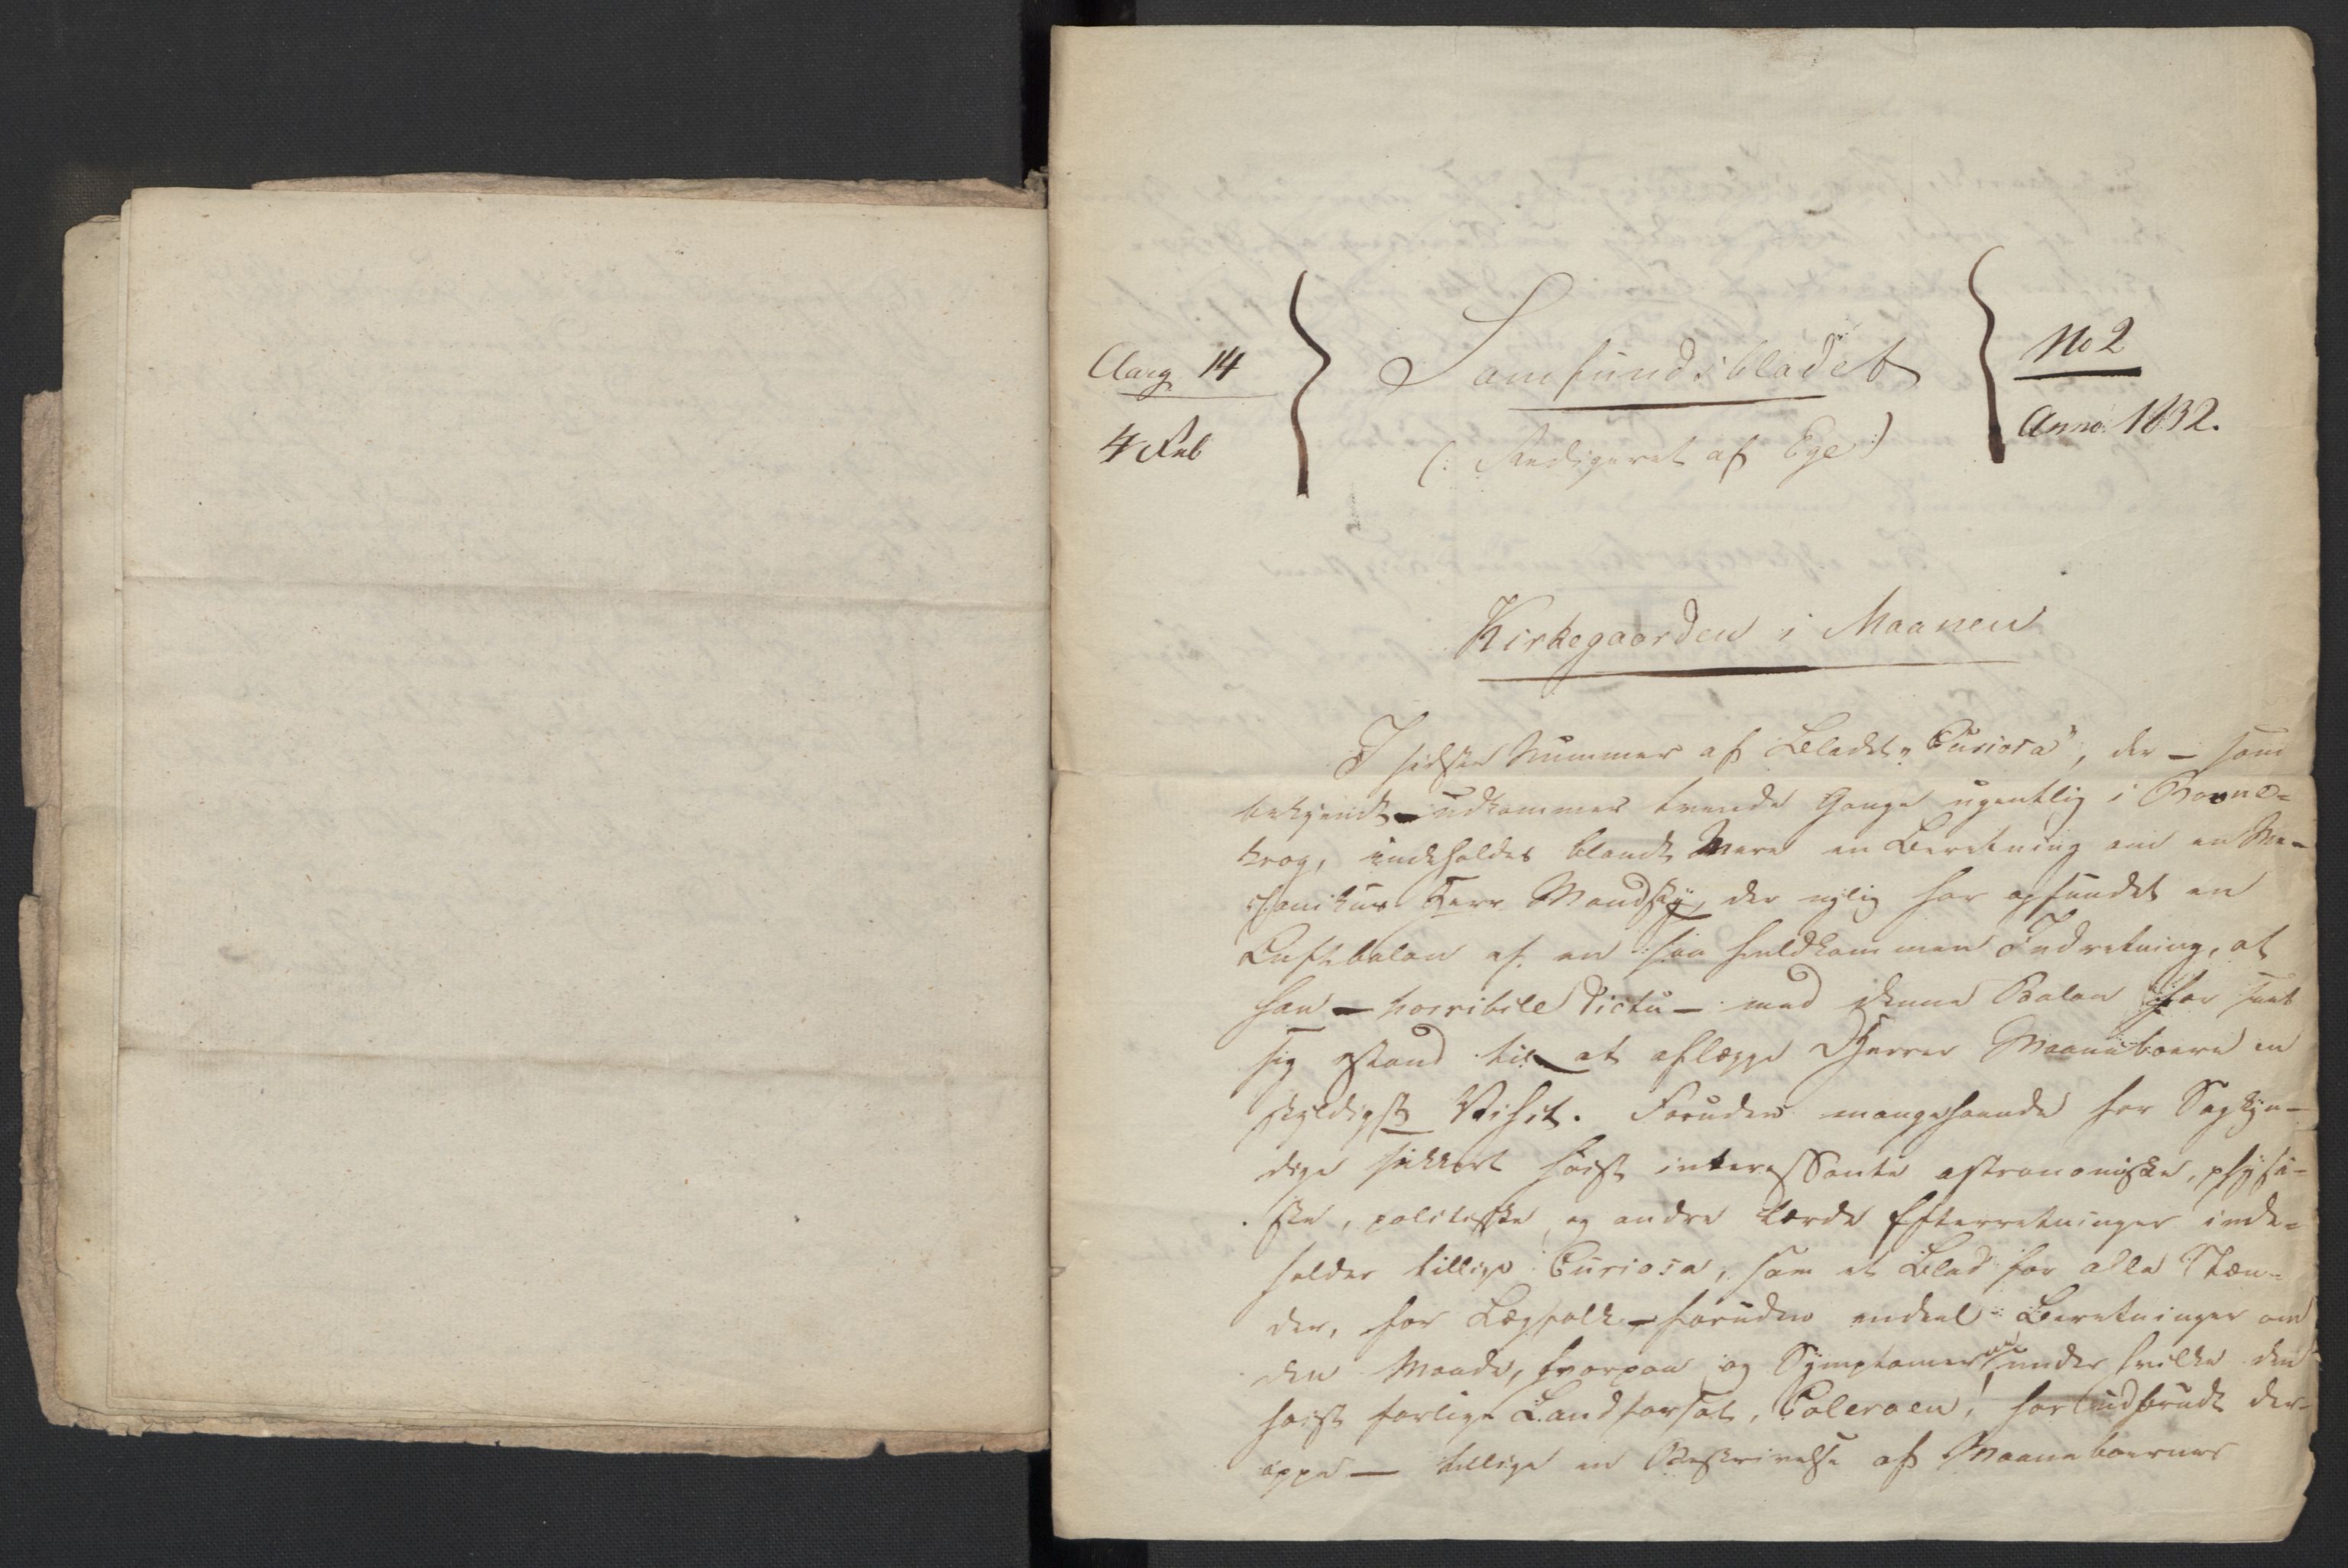 Aarg 14
4 Feb
Samfundsbladet
(: Redigeret af Ege :)
No 2
Anno 1832.
Kirkegaarden i Maanen
I sidste Nummer af Bladet „Curiosa”, der — som
bekjendt — udkommer trende Gange ugentlig i
krog, indeholdes blandt Mere en Beretning om en Me-
chanikus Herr Mandsky, der nylig har opfundet en
Luftbalon af en saa fuldkommen Indretning, at
han — horribile dictu — med denne Balon har seet
sig istand til at aflægge DHerrer Maaneboere en
skyldigst Visit. Foruden mangehaande for Sagkyn-
dige sikkert høist interessante astronomiske, physi-
ske, politiske og andre lærde Efterretninger inde-
holder tillige Curiosa, som et Blad for alle Stæn-
der, for Lægfolk — foruden endeel Beretninger om
den Maade, hvorpaa og Symptomer under hvilke den
høist farlige Landfarsot, Coleraen, har udbrudt der-
oppe — tillige en Beskrivelse af Maaneboernes